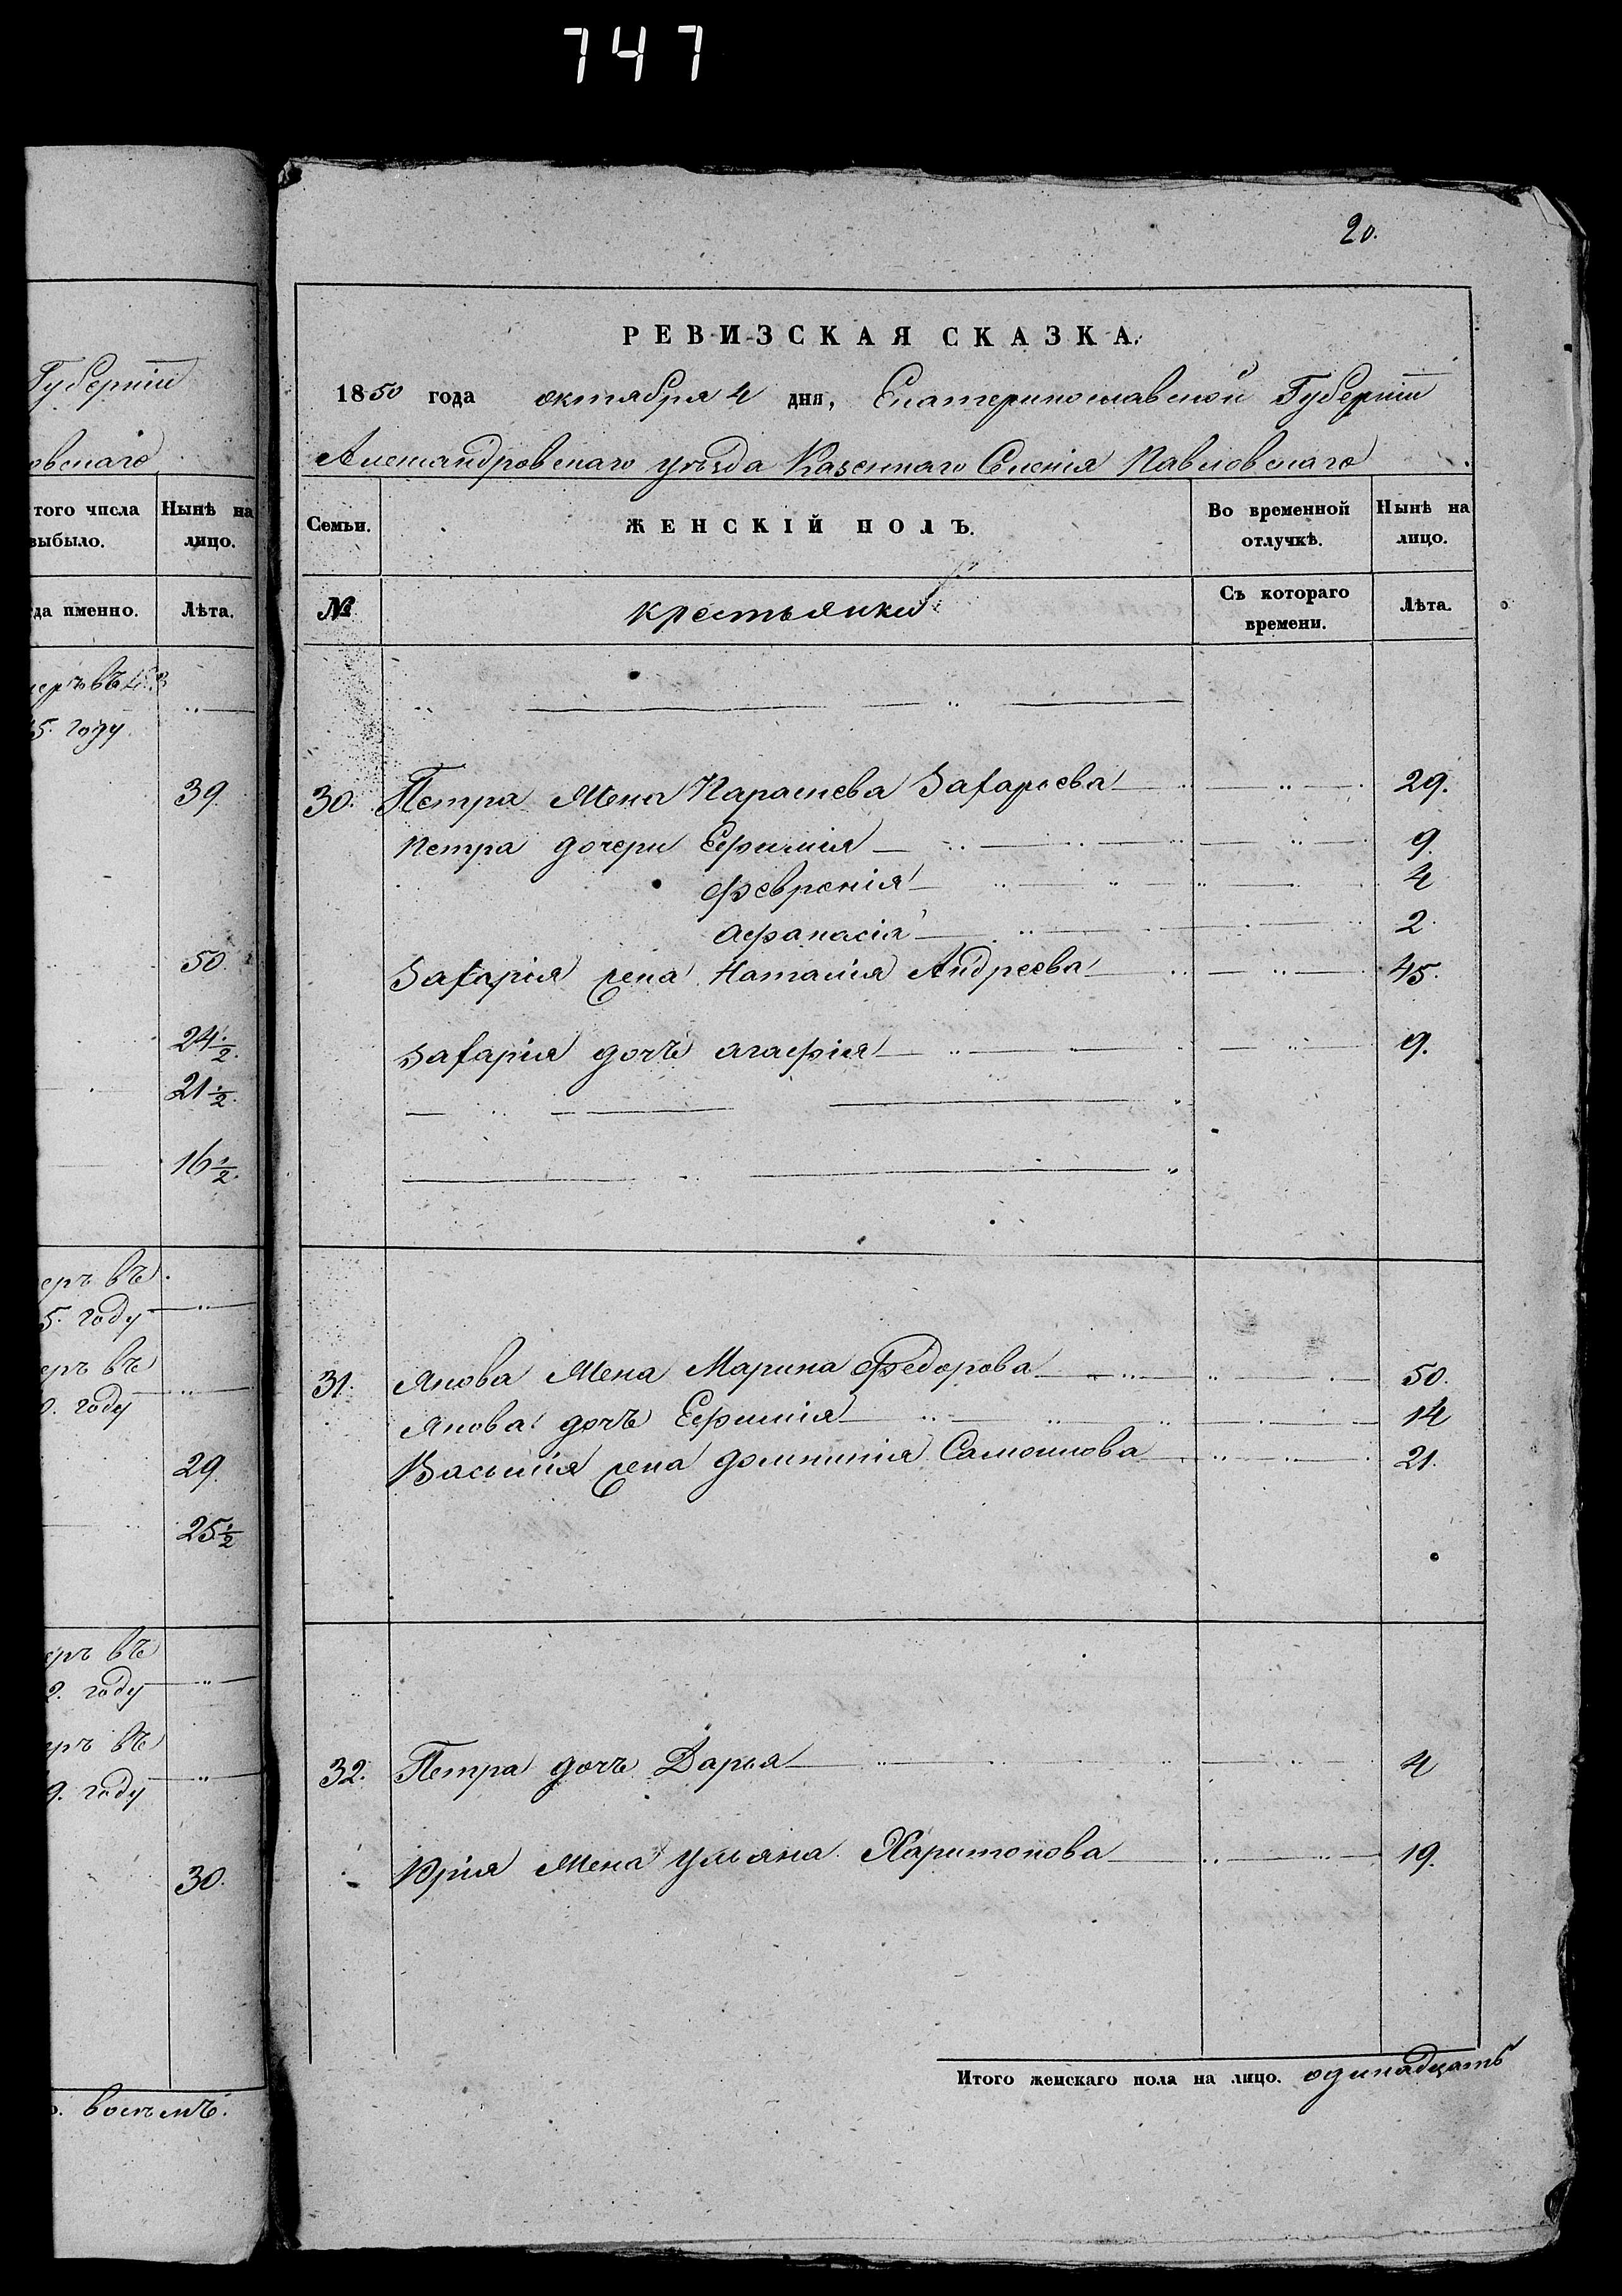 747
20.
Губерніи
овскаго
того числа
выбыло.
Нынѣ на
лицо.
да именно.
Лѣта.
5. году
39
50.
24 1/2.
21 1/2.
16 1/2.
еръ въ
5. году
еръ въ
0. году
29
25 1/2
еръ въ
2. году
еръ въ
9. году
30.
восемъ.
РЕВИЗСКАЯ СКАЗКА.
1850 года октября 4 дня, Екатеринославской Губерніи
Александровскаго уѣзда Казеннаго Селенія Павловскаго
Семьи.
ЖЕНСКІЙ ПОЛЪ.
Во временной
отлучкѣ.
Нынѣ на
лицо.
№
крестьянки
Съ котораго
времени.
Лѣта.
30. Петра Жена Параскева Захарьева 29.
Петра дочери Ефимія 9.
Февронія 4
Афанасія 2.
Захарія жена Наталія Андреева 45.
Захарія дочъ агафія 9.
31. Якова Жена Марина Федорова 50.
Якова дочъ Ефимія 14
Василія жена домникія Самоилова 21.
32. Петра дочъ Дарья 4
Юрія Жена ульяна Харитонова 19.
Итого женскаго пола на лицо. одинадцать